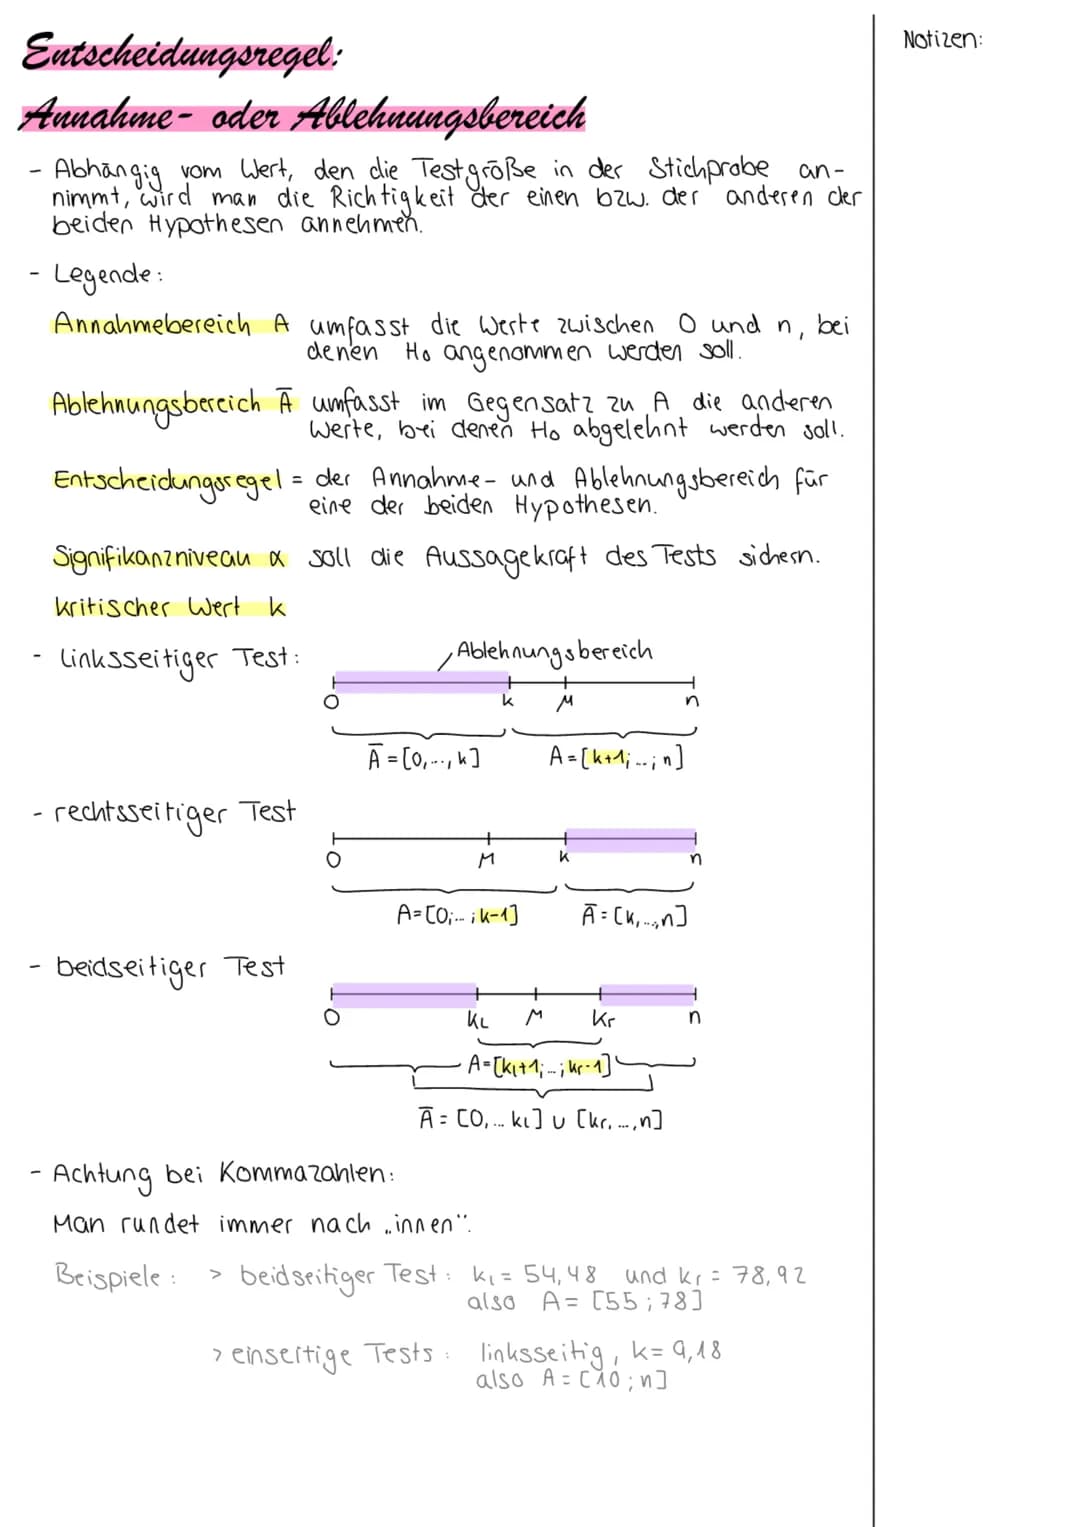 Entscheidungsregel:
Annahme- oder Ablehnungsbereich
Notizen:
- Abhängig vom Wert, den die Testgröße in der Stichprobe an-
nimmt, wird man die Richtigkeit der einen bzw. der anderen der
beiden Hypothesen annehmen.
- Legende:
Annahmebereich A umfasst die Werte zwischen 0 und n, bei
denen H₀ angenommen werden soll.
Ablehnungsbereich Ā umfasst im Gegensatz zu A die anderen
Werte, bei denen H₀ abgelehnt werden soll.
Entscheidungsregel = der Annahme- und Ablehnungsbereich für
eine der beiden Hypothesen.
Signifikanzniveau α soll die Aussagekraft des Tests sichern.
kritischer Wert k
- linksseitiger Test:
Ablehnungsbereich
0 k μ n
Ā = [0,...,k] A = [k+1;...;n]
- rechtsseitiger Test
0 μ k n
A=[0;...;k-1] Ā = [k,...,n]
- beidseitiger Test
0 kL μ kr n
A=[kl+1;...;kr-1]
Ā = [0,... kl] ∪ [kr,...,n]
- Achtung bei Kommazahlen:
Man rundet immer nach „innen".
Beispiele: > beidseitiger Test: kl = 54,48 und kr = 78,92
also A = [55;78]
> einseitige Tests: linksseitig, k= 9,18
also A = [10;n]